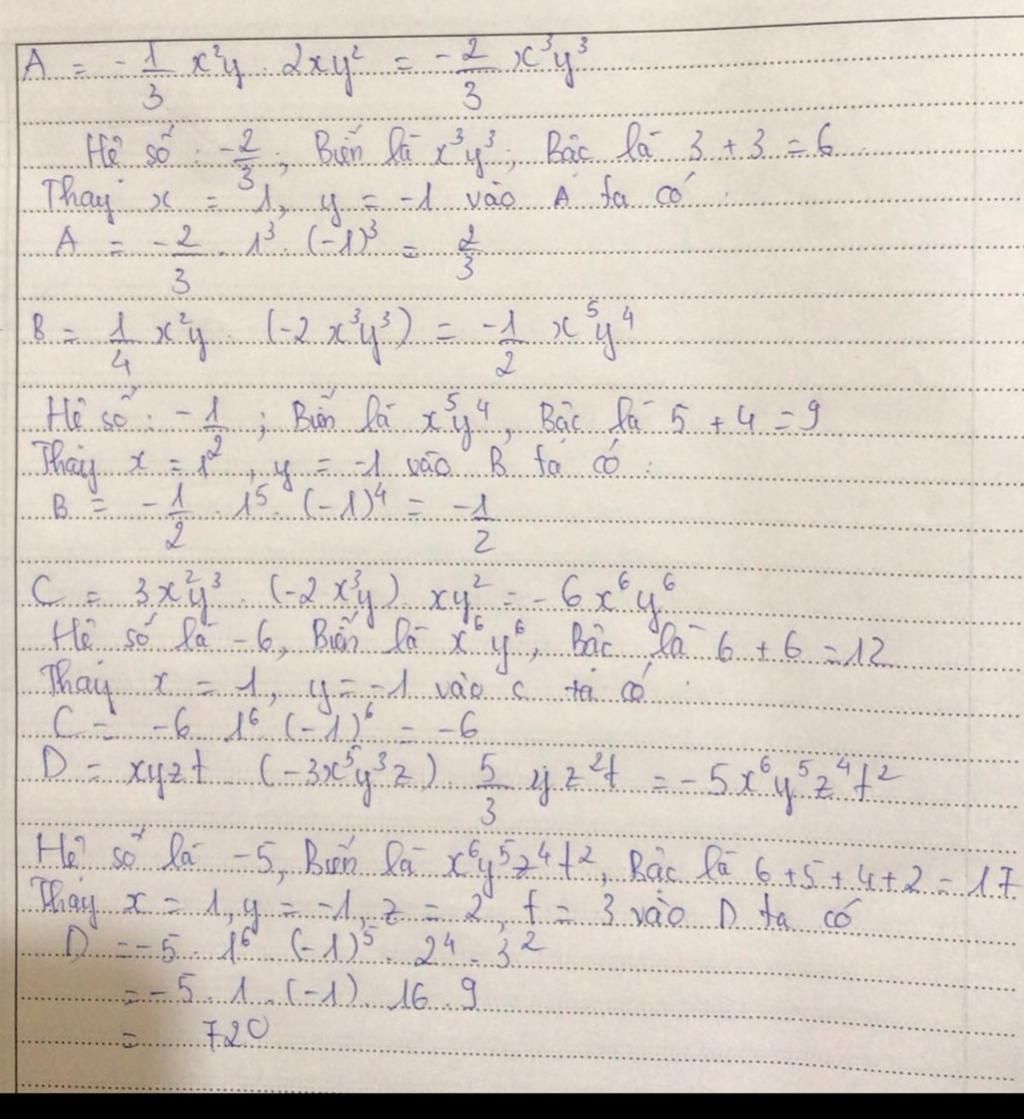 A = - 1/3 x²y . 2xy² = - 2/3 x³y³
Hệ số : -2/3 ; Biến là x³y³ ; Bậc là 3 + 3 = 6
Thay x = 1, y = -1 vào A ta có :
A = - 2/3 . 1³ . (-1)³ = 2/3
B = 1/4 x²y . (-2x³y³) = -1/2 x⁵y⁴
Hệ số : - 1/2 ; Biến là x⁵y⁴, Bậc là 5 + 4 = 9
Thay x = 1, y = -1 vào B ta có :
B = - 1/2 . 1⁵ . (-1)⁴ = -1/2
C = 3x²y³ . (-2x³y) . xy² = - 6x⁶y⁶
Hệ số là -6, Biến là x⁶y⁶, Bậc là 6 + 6 = 12
Thay x = 1, y = -1 vào C ta có :
C = -6 . 1⁶ (-1)⁶ = -6
D = xyzt . (-3x⁵y³z) . 5/3 yz²t = - 5x⁶y⁵z⁴t²
Hệ số là -5, Biến là x⁶y⁵z⁴t², Bậc là 6+5+4+2 = 17
Thay x = 1, y = -1, z = 2, t = 3 vào D ta có
D = -5 . 1⁶ . (-1)⁵ . 2⁴ . 3²
= -5 . 1 . (-1) . 16 . 9
= 720